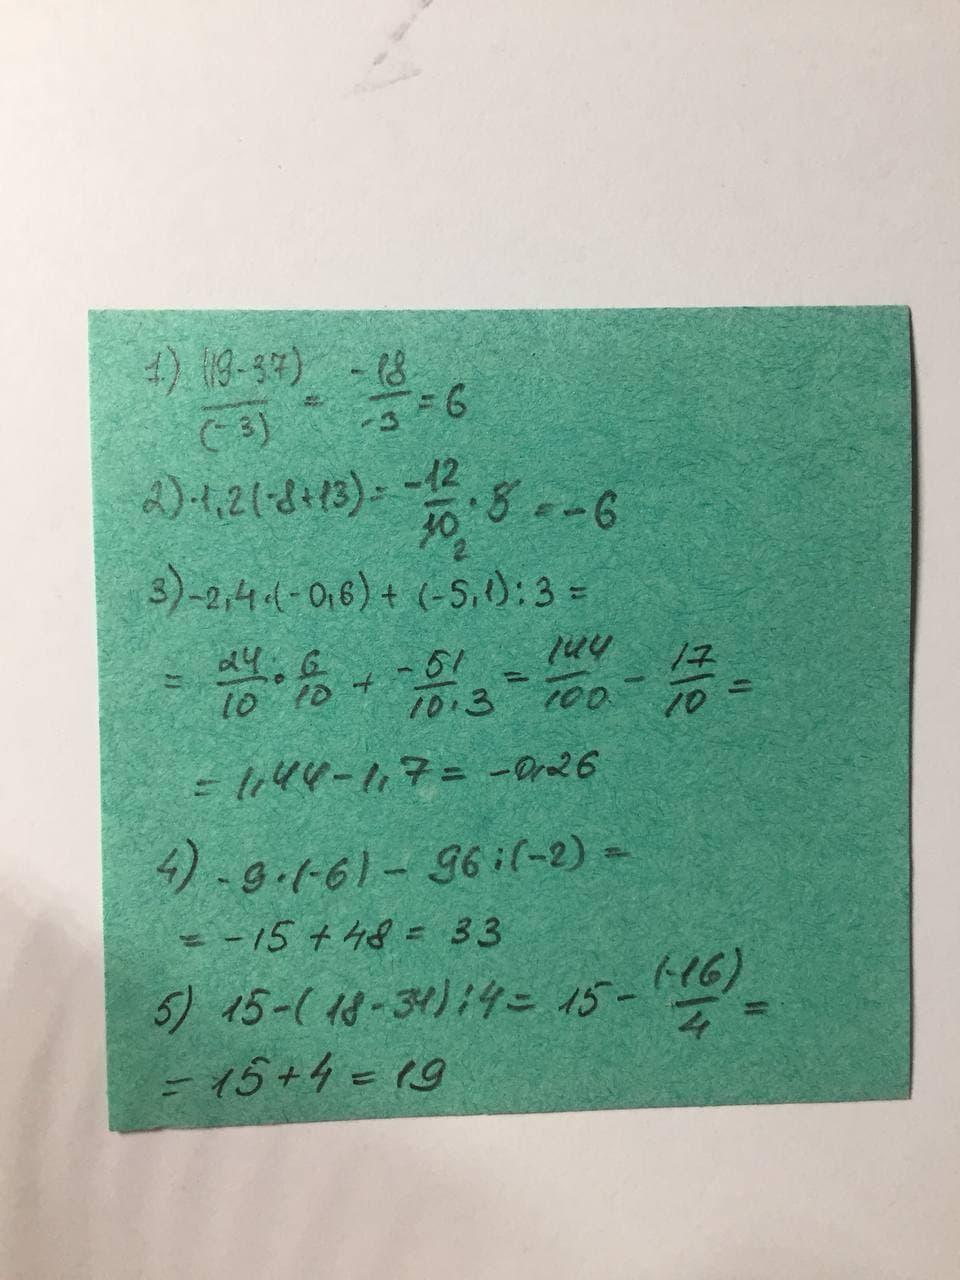 1.) (19-37)/(-3) = -18/-3 = 6
2) -1,2(-8+13) = -12/10 2 · 5 = -6
3) -2,4·(-0,6) + (-5,1):3 =
= 24/10 · 6/10 + -51/10·3 = 144/100 - 17/10 =
= 1,44 - 1,7 = -0,26
4) -9·(-6) - 96:(-2) =
= -15 + 48 = 33
5) 15-(18-34):4 = 15 - (-16)/4 =
= 15 + 4 = 19